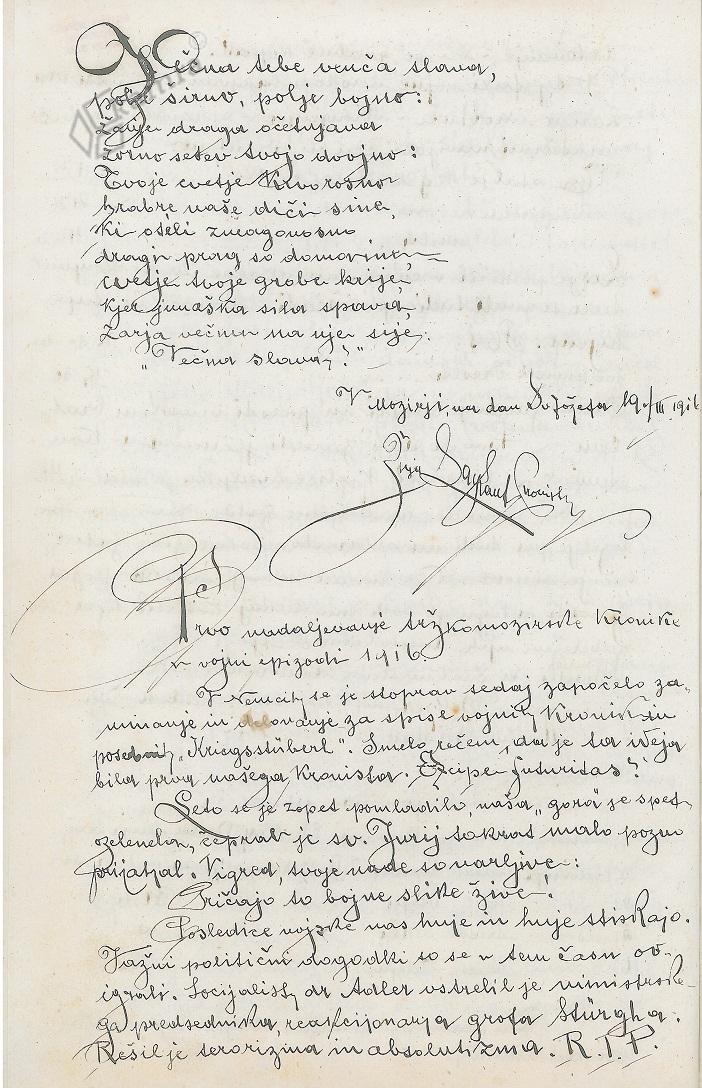 Večna tebe venča slava,
polje sirno, polje bojno:
Žanje draga očetnjava
zorno setev tvojo dvojno:
Tvoje cvetje krvorosno
hrabre naše diči sine,
ki oteli zmagonosno
dragi prag so domovine,
cvetje tvoje grobe krije,
kjer junaška sila spava,
zarja večnu na nje sije:
„Večna slava!"
V Mozirji, na dan Sv. Jožefa 19./III. 1916

Prvo nadaljevanje tržkomozirske Kronike
v vojni epizodi 1916.
V Nemčih se je stoprav sedaj započelo za-
nimanje in delovanje za spise vojnih Kronik in
posebnih „Kriegsstüberl". Smelo rečem, da je ta ideja
bila prva našega kronista. Excipe futuritas!
Leto se je zopet pomladilo, naša „gora" je spet
ozelenela, čeprav je sv. Jurij takrat malo pozno
prijahal. Vigred, tvoje nade so varljive:
Pričajo to bojne slike žive!
Posledice vojske nas huje in huje stiskajo.
Važni politični dogodki so se v tem času od-
igrali. Socijalist dr Adler ustrelil je ministrske-
ga predsednika, reakcijonarja grofa Stürgha.
Rešil je terorizma in absolutizma. R.I.P.